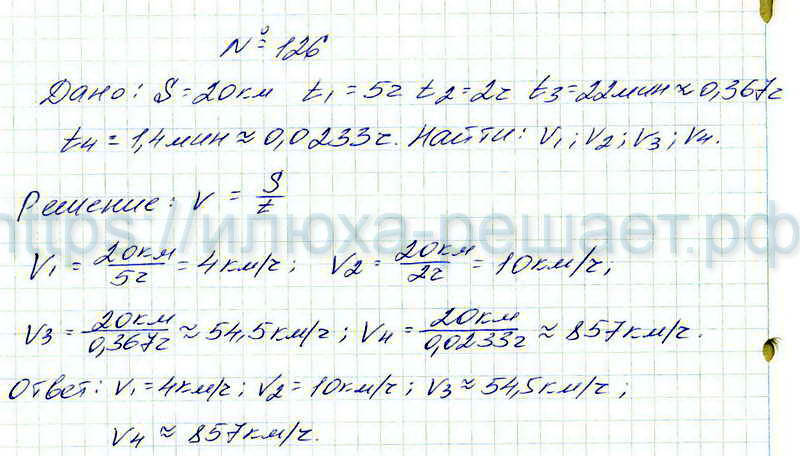 № 126
Дано: S = 20км t₁ = 5ч t₂ = 2ч t₃ = 22мин ≈ 0,367ч
t₄ = 1,4мин ≈ 0,0233ч. Найти: V₁; V₂; V₃; V₄.
Решение: V = S/t
https://илюха-решает.рф
V₁ = 20км/5ч = 4км/ч; V₂ = 20км/2ч = 10км/ч;
V₃ = 20км/0,367ч ≈ 54,5км/ч; V₄ = 20км/0,0233ч ≈ 857км/ч.
Ответ: V₁ = 4км/ч; V₂ = 10км/ч; V₃ ≈ 54,5км/ч;
V₄ ≈ 857км/ч.